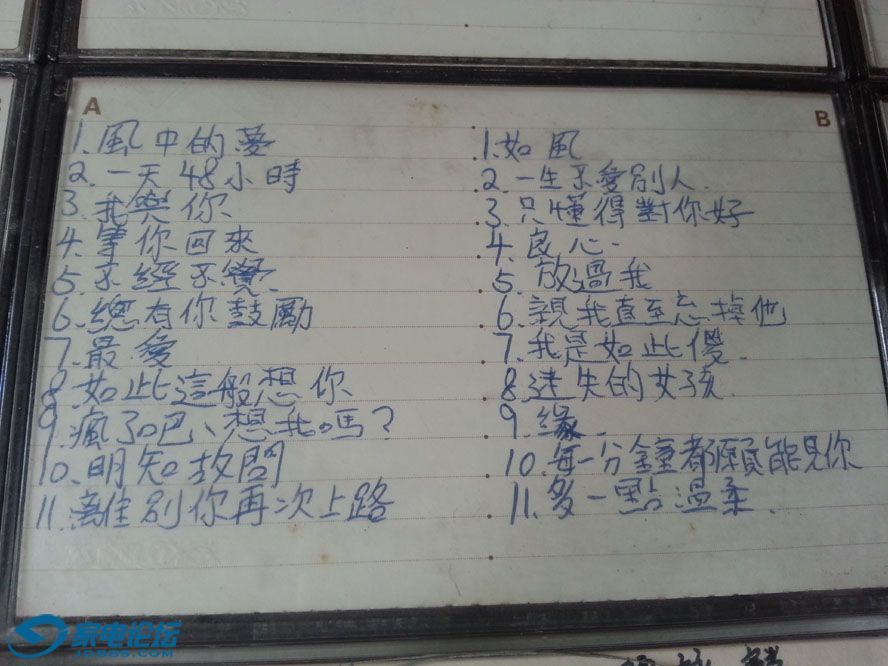 A
1.風中的夢
2.一天48小時
3.我與你
4.等你回來
5.不經不覺
6.總有你鼓勵
7.最愛
8.如此這般想你
9.瘋了吧、想我嗎?
10.明知故問
11.離別你再次上路
B
1.如風
2.一生不愛別人.
3.只懂得對你好
4.良心.
5.放過我
6.親我直至忘掉他
7.我是如此傻.
8.迷失的女孩.
9.緣.
10.每一分鐘都願能見你
11.多一點溫柔.
家电论坛
JD888.COM